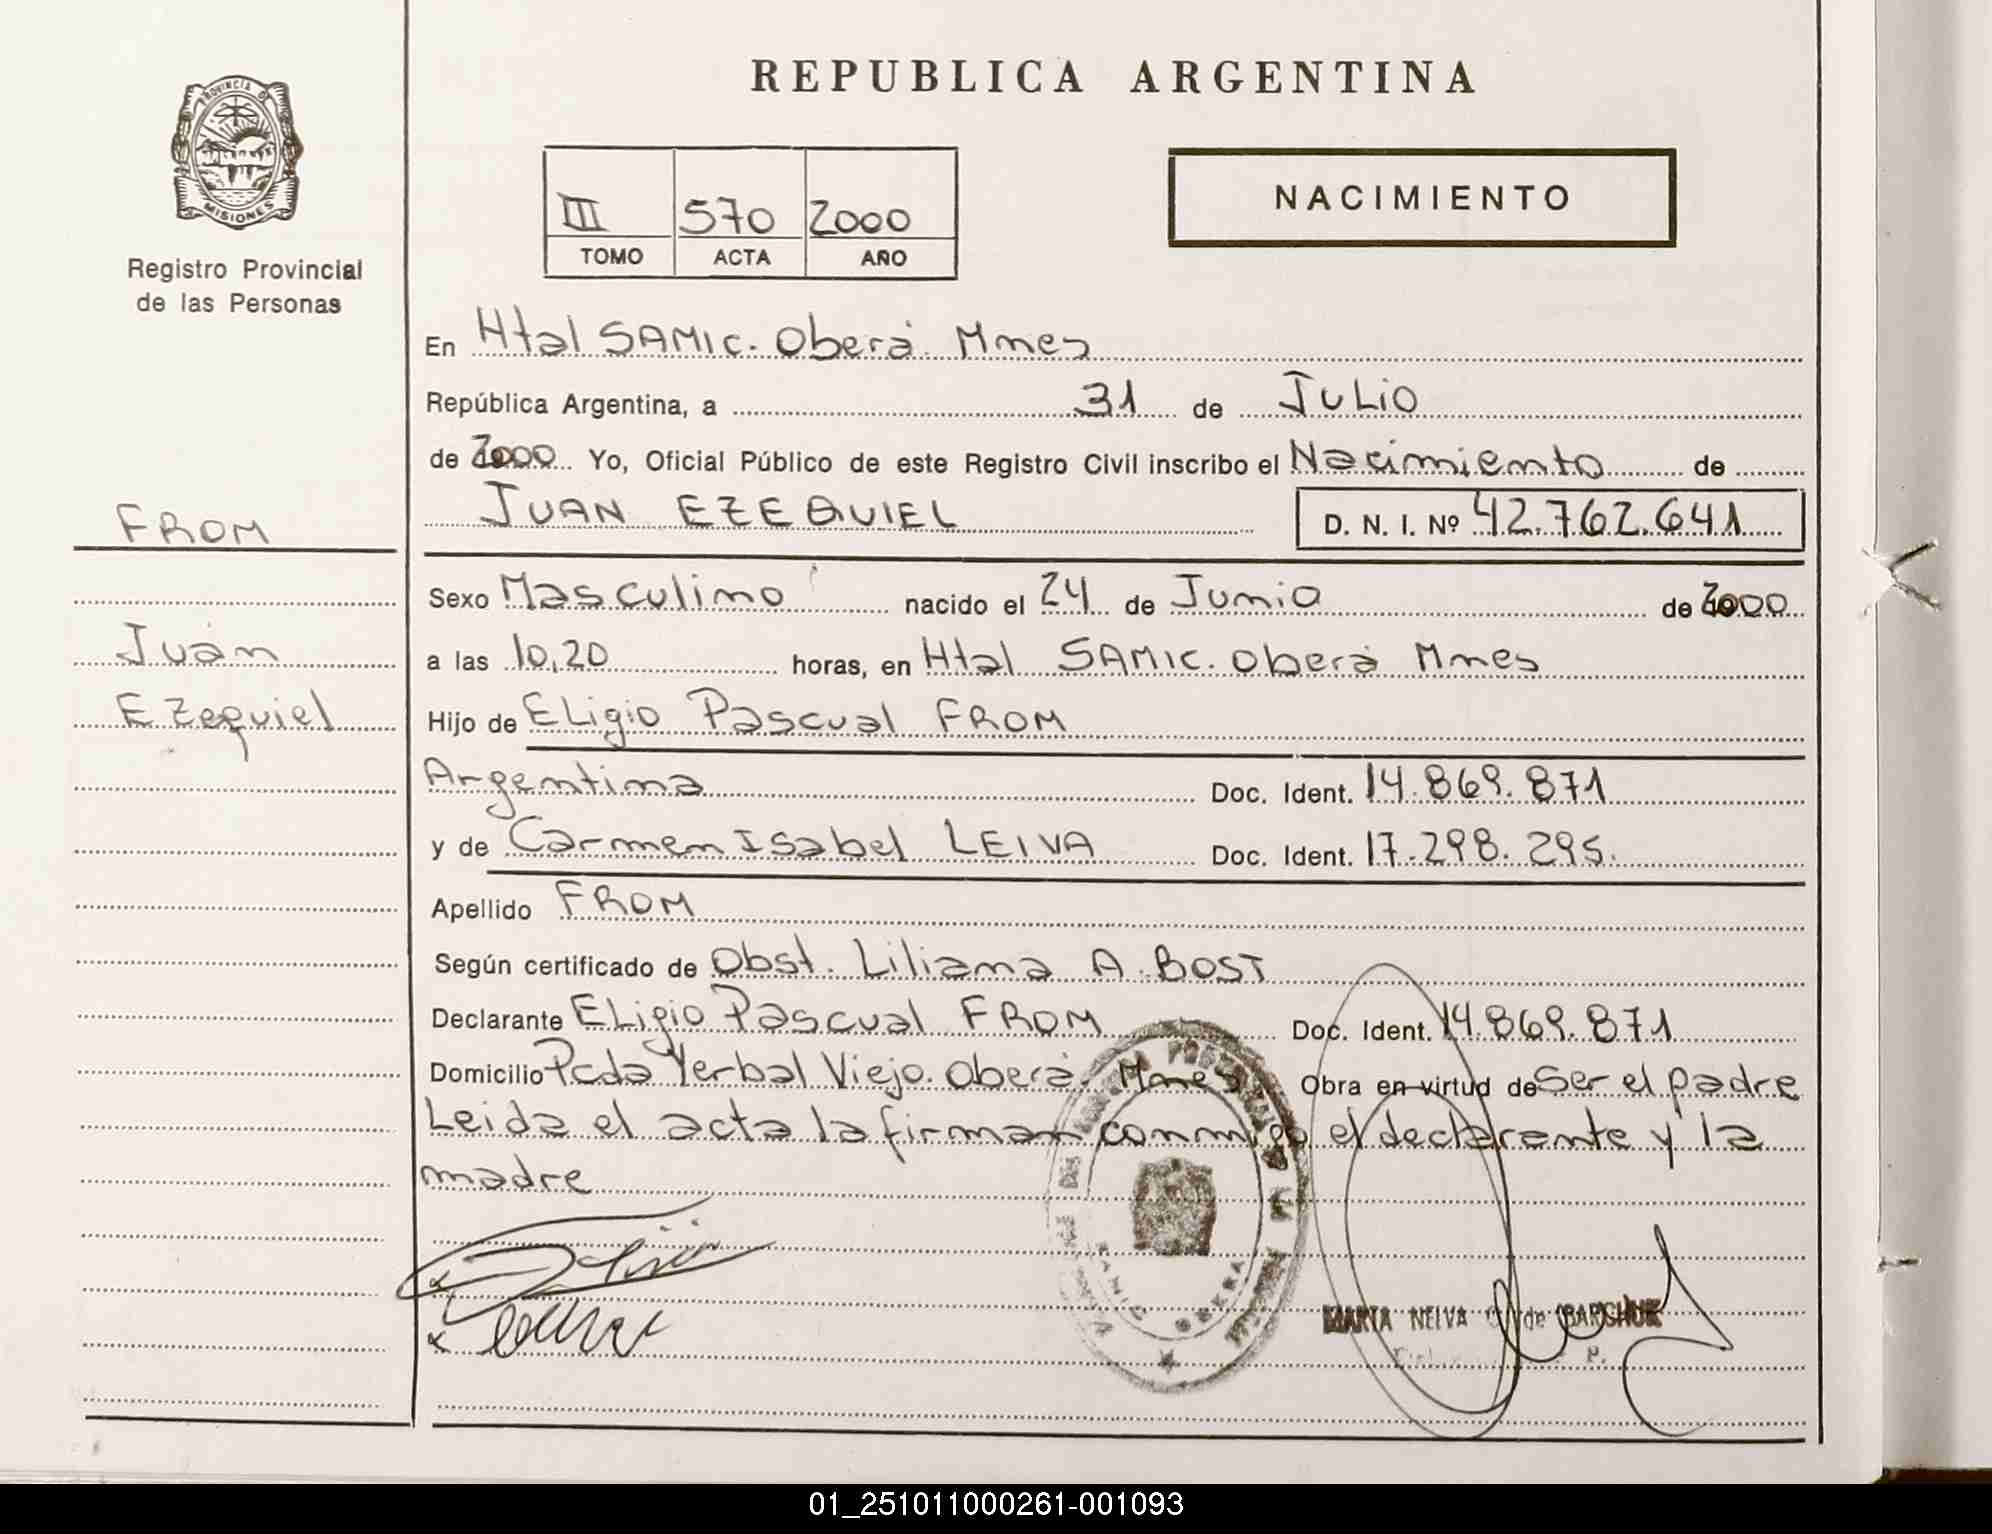 REPUBLICA ARGENTINA
PROVINCIA DE MISIONES
Registro Provincial
de las Personas
III 570 2000
TOMO ACTA AÑO
NACIMIENTO
En Htal SAMIC. Oberá. Mnes
República Argentina, a 31 de JULIO
de 2000 Yo, Oficial Público de este Registro Civil inscribo el Nacimiento de
JUAN EZEQUIEL D. N. I. Nº 42.762.641
FROM
Juan
Ezequiel
Sexo Masculino nacido el 24 de Junio de 2000
a las 10,20 horas, en Htal SAMIC. Oberá Mnes
Hijo de ELigio Pascual FROM
Argentina Doc. Ident. 14.869.871
y de Carmen Isabel LEIVA Doc. Ident. 17.298.295.
Apellido FROM
Según certificado de Obst. Liliana A. BOST
Declarante ELigio Pascual FROM Doc. Ident. 14.869.871
Domicilio Pcda Yerbal Viejo. Oberá. Mnes Obra en virtud de Ser el padre
Leida el acta la firman conmigo el declarante y la
madre
MARTA NEIVA de BARCHUK
01_251011000261-001093